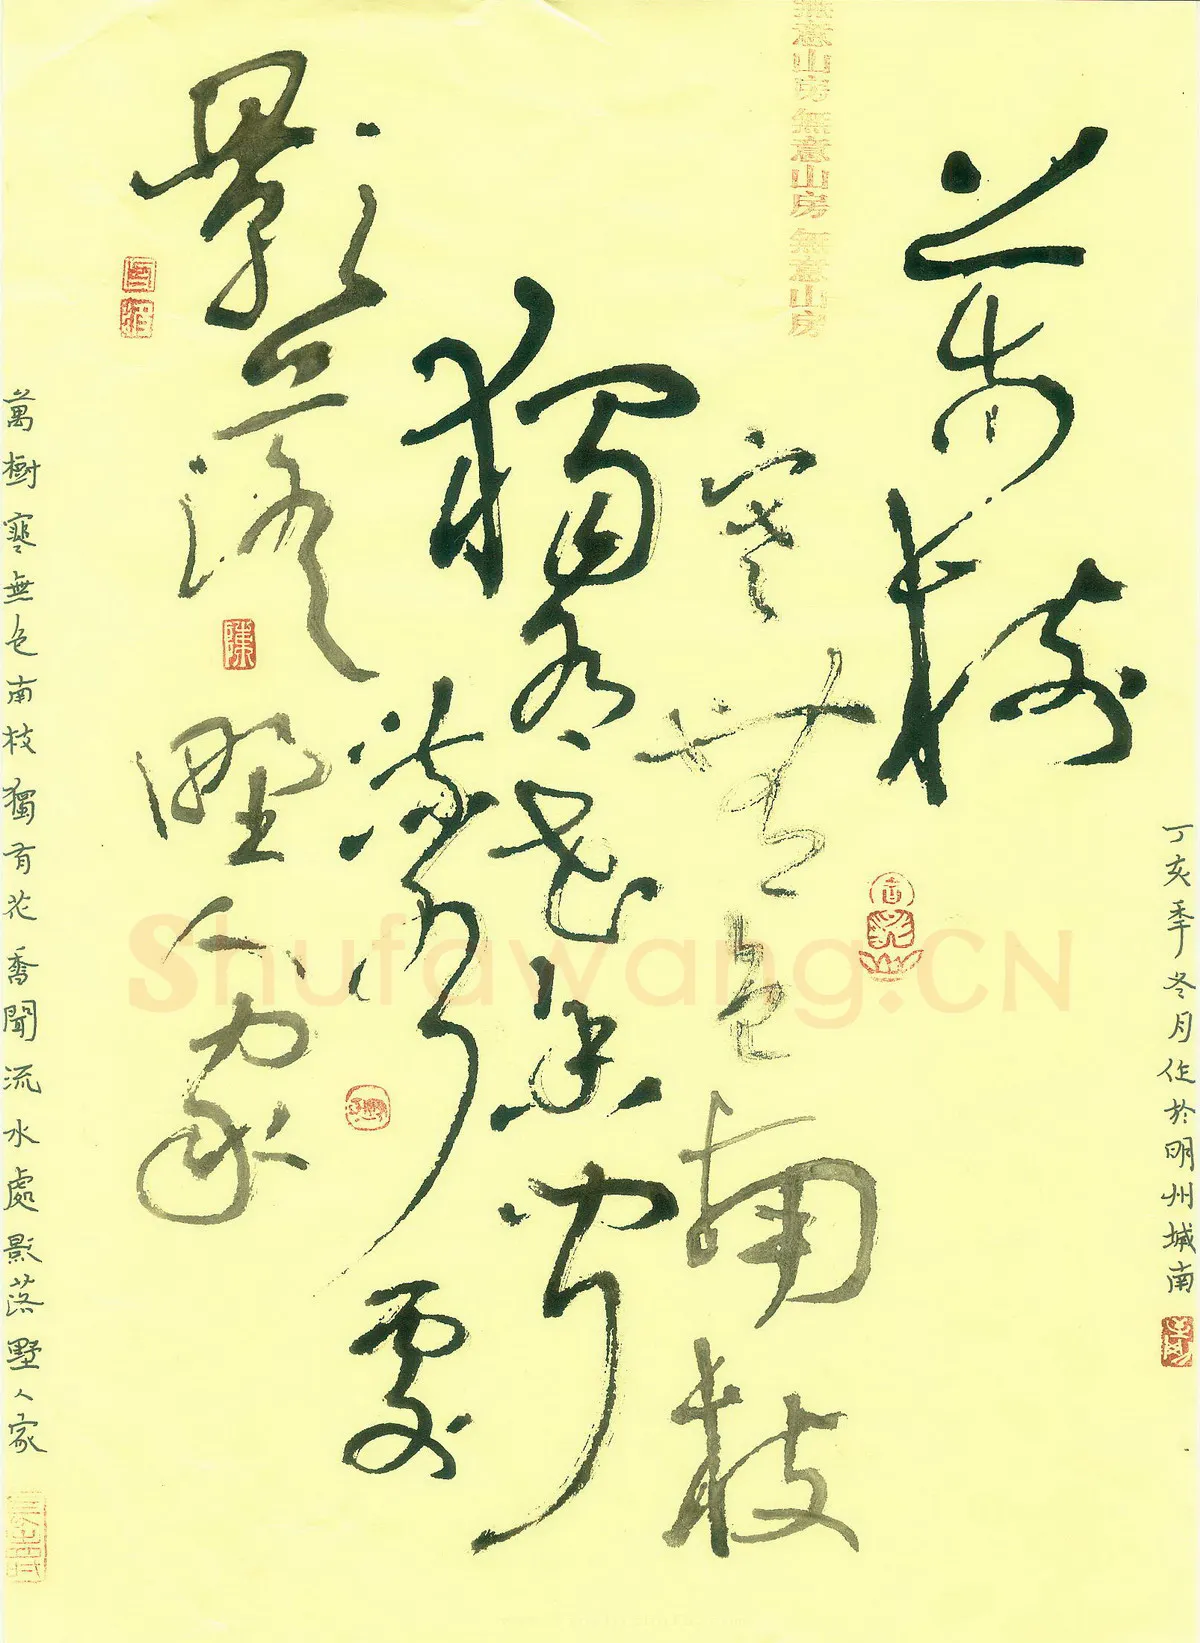 丁亥季冬月作於明州城南
萬樹
寒無色南枝
獨有花香聞
流水處
影落野人家
萬樹寒無色南枝獨有花香聞流水處影落墅人家
無意山房 無意山房 無意山房
陳
Shufawang.CN